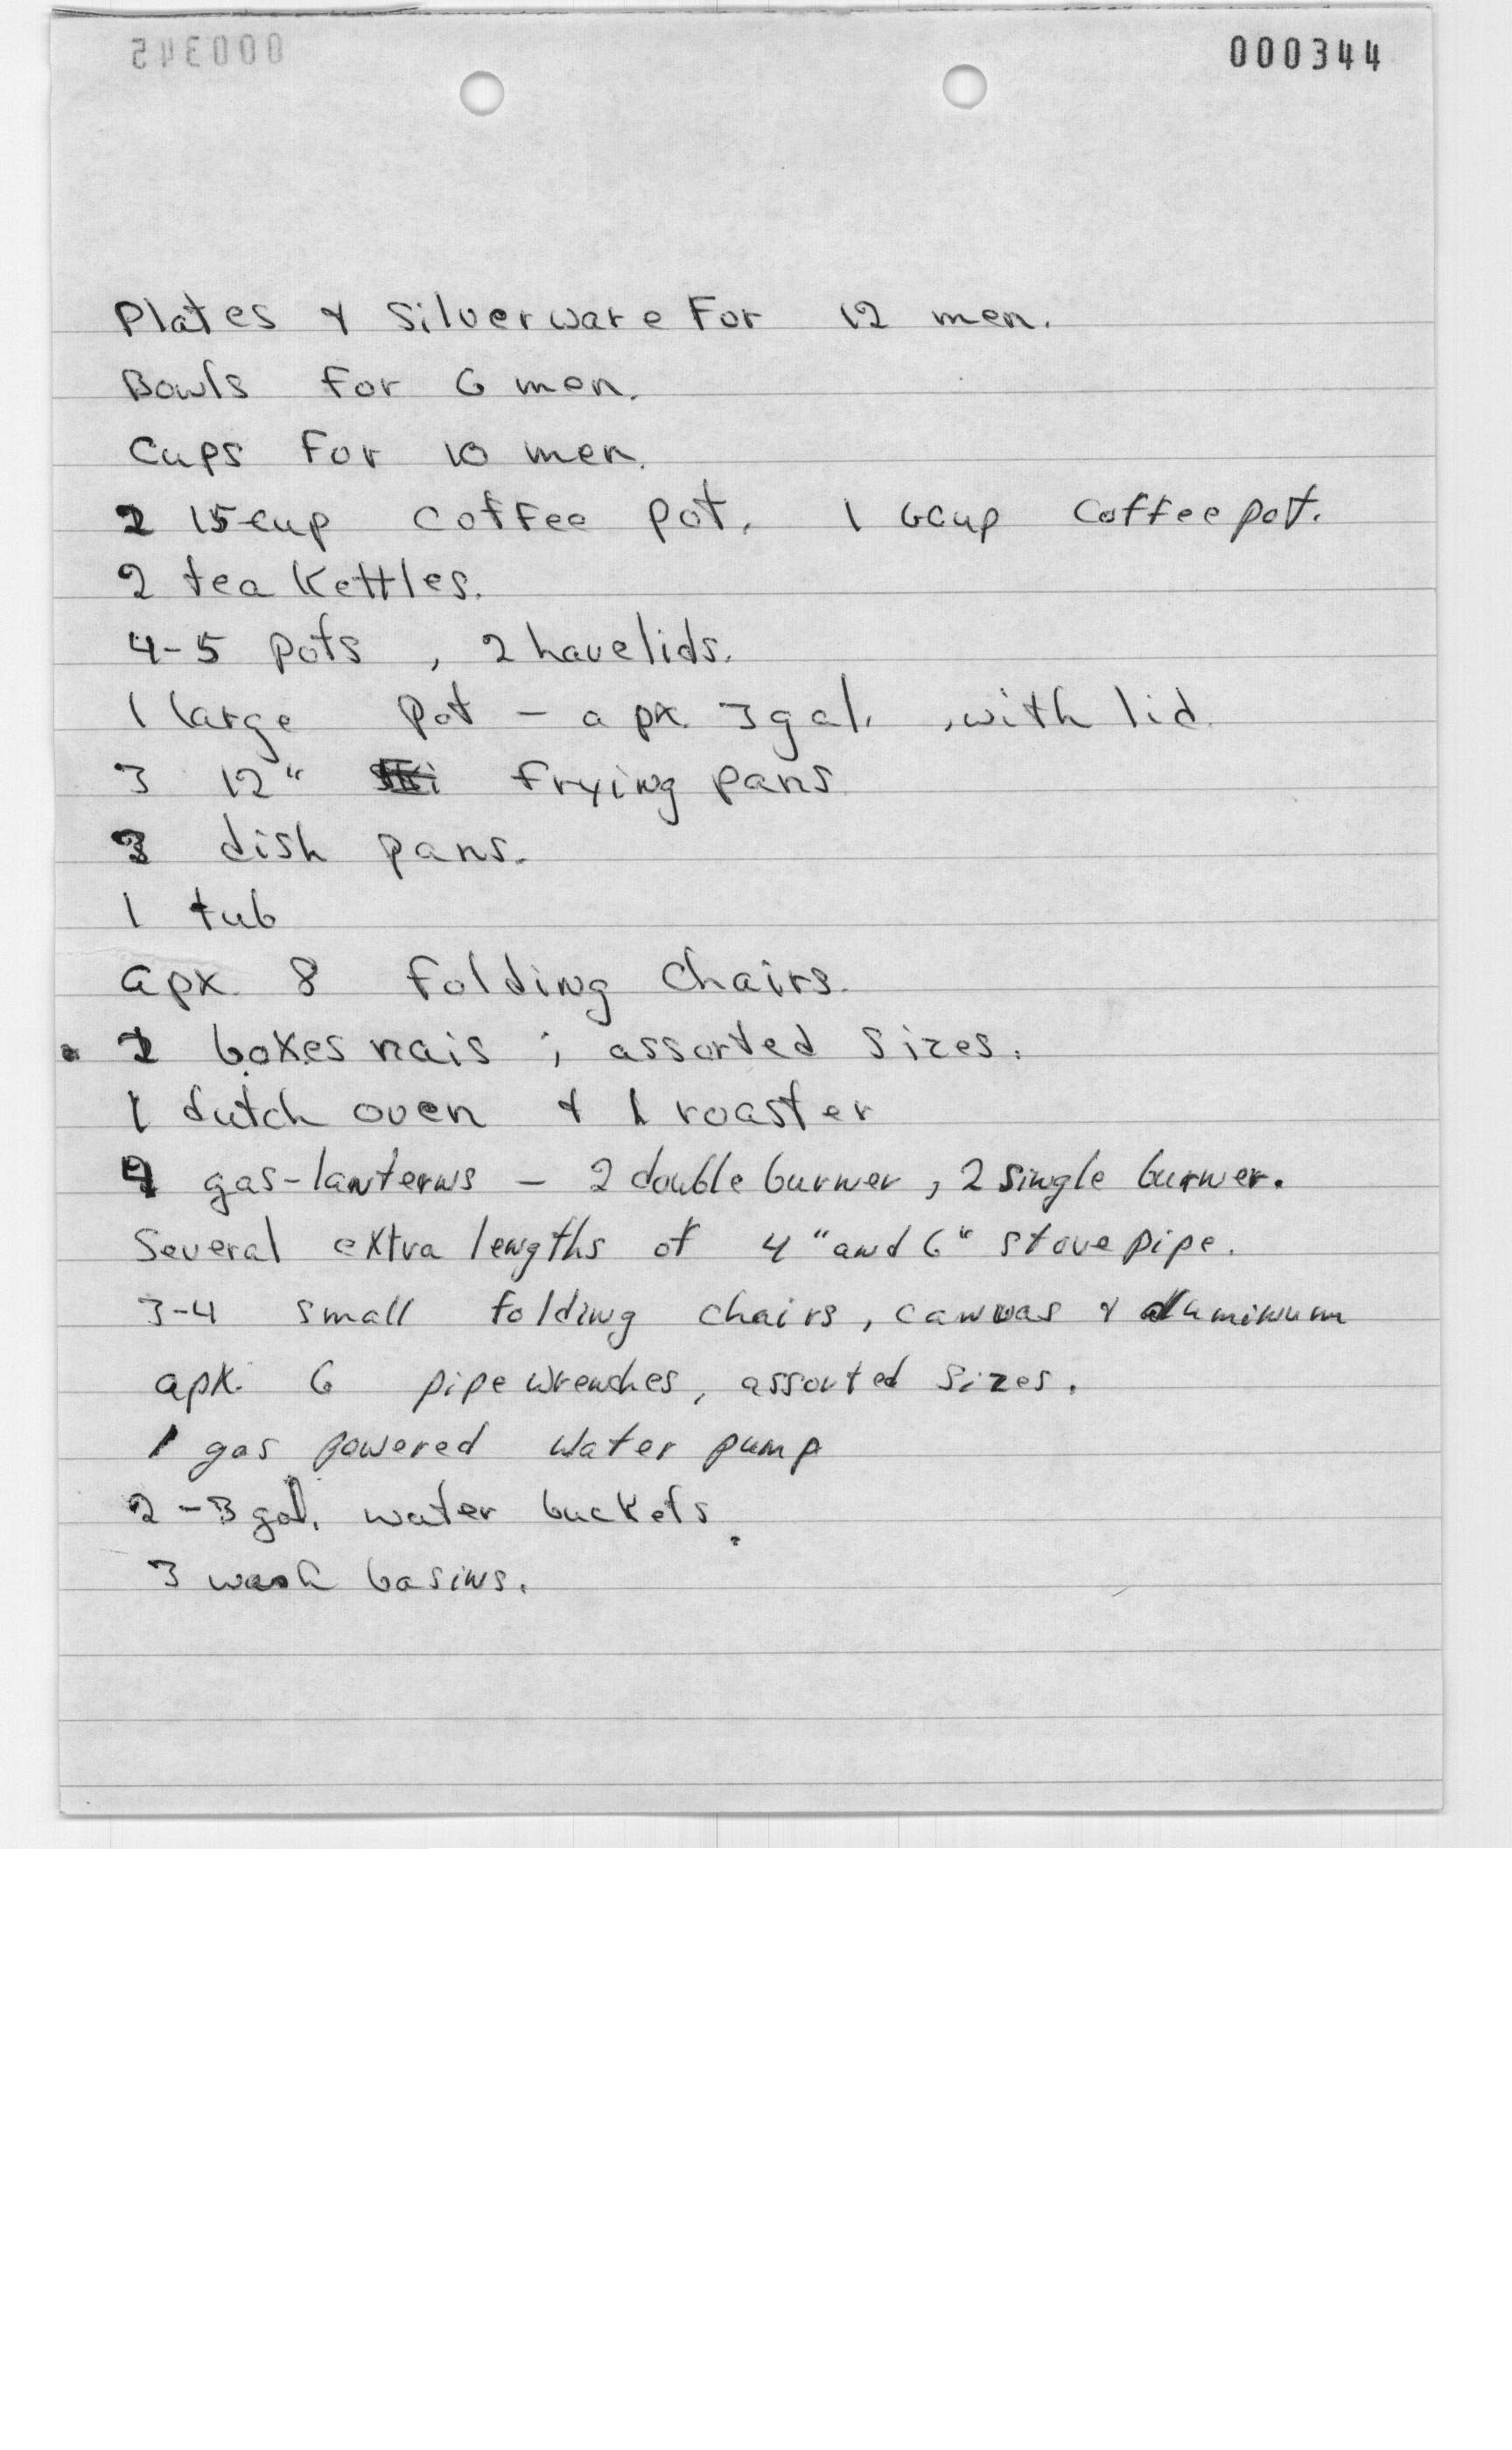 000344
Plates & Silverware For 12 men.
Bowls For 6 men.
Cups For 10 men.
2 15-cup coffee pot. 1 6cup coffee pot.
2 tea Kettles.
4-5 pots , 2 have lids.
1 large pot - apx. 3 gal. , with lid.
3 12" frying pans
3 dish pans.
1 tub
apx. 8 folding chairs.
2 boxes nais ; assorted sizes.
1 dutch oven & 1 roaster
4 gas-lanterns - 2 double burner, 2 single burner.
Several extra lengths of 4" and 6" stove pipe.
3-4 small folding chairs, canvas & aluminum
apx. 6 pipe wrenches, assorted sizes.
1 gas powered water pump
2 - 3 gal. water buckets.
3 wash basins.